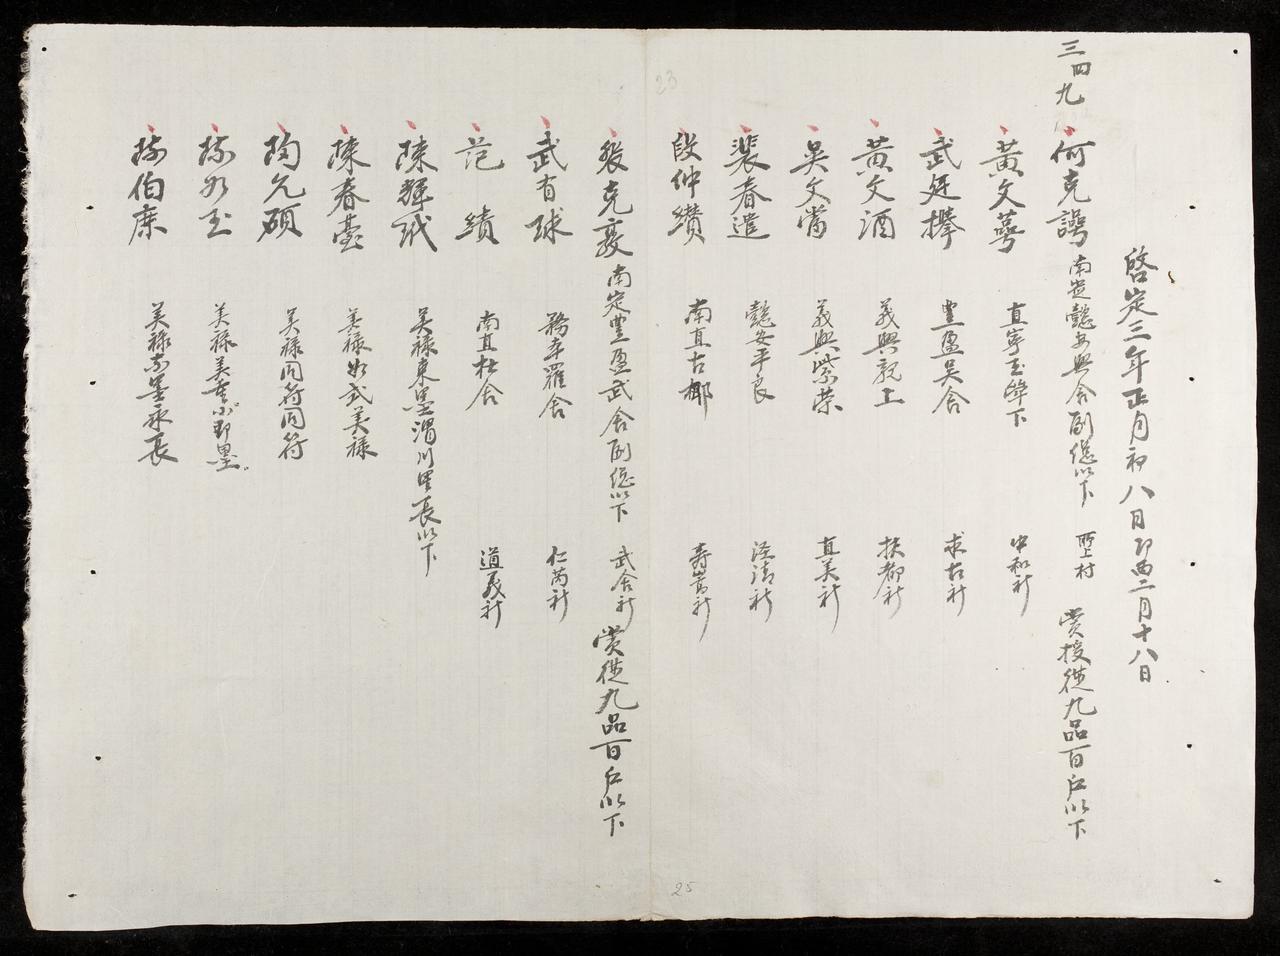 三四九
啓定三年正月初八日卽西二月十八日
何克謣 南定懿安興舍副總以下 村 賞授從九品百户以下
黃文萼 直寧玉 下 中和社
武廷攀 豊盈吳舍 求古社
黃文酒 義興親上 扶都社
吳文當 義興紫榮 直美社
裴春遣 懿安平良 涇清社
段仲纘 南直古椰 寿嵩社
23
張克裵 南定豊盈武舍副總以下 武舍社 賞從九品百户以下
武有球 務本羅舍 仁芮社
范 績 南直杜舍 道義社
陳輝珬 美祿東墨渭川里長以下
陳春臺 美祿 美祿
陶允碩 美祿同符同符
玉 美祿美
伯 美祿東墨永長
25